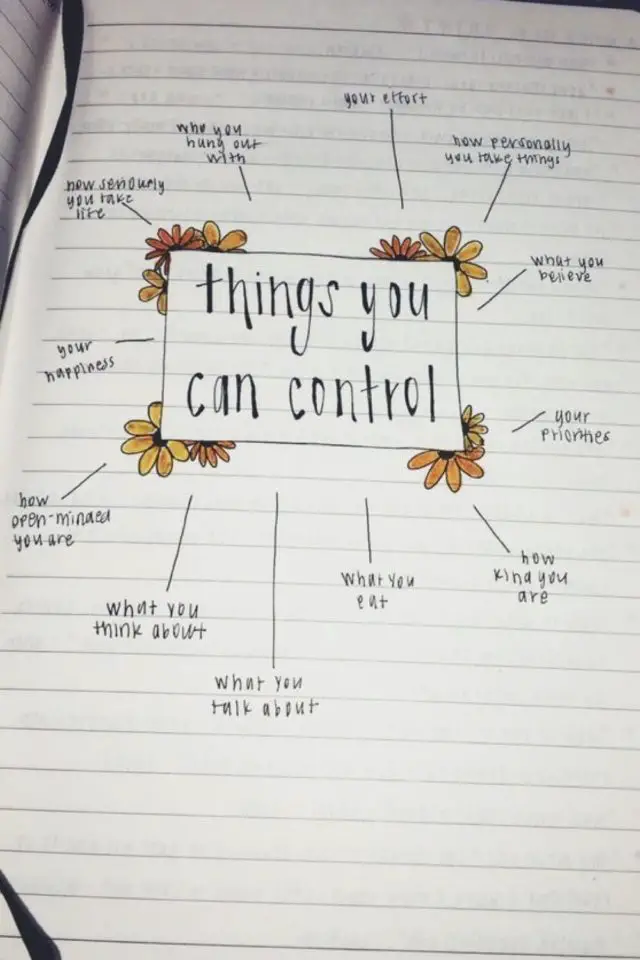 things you
can control
your effort
how personally
you take things
what you
believe
your
priorities
how
kind you
are
what you
eat
what you
talk about
what you
think about
how
open-minded
you are
your
happiness
how seriously
you take
life
who you
hang out
with